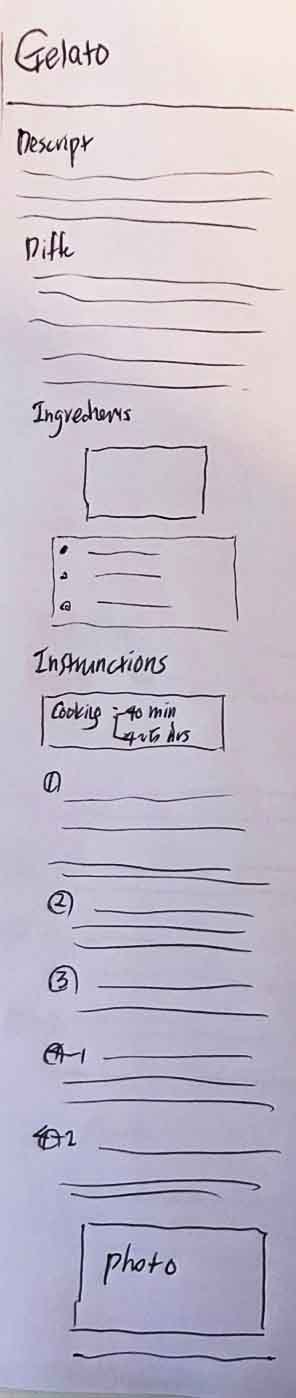 Gelato
Descript
Diffc
Ingredients
Instrunctions
Cooking 40 min
4~5 hrs
①
②
③
④-1
④-2
photo